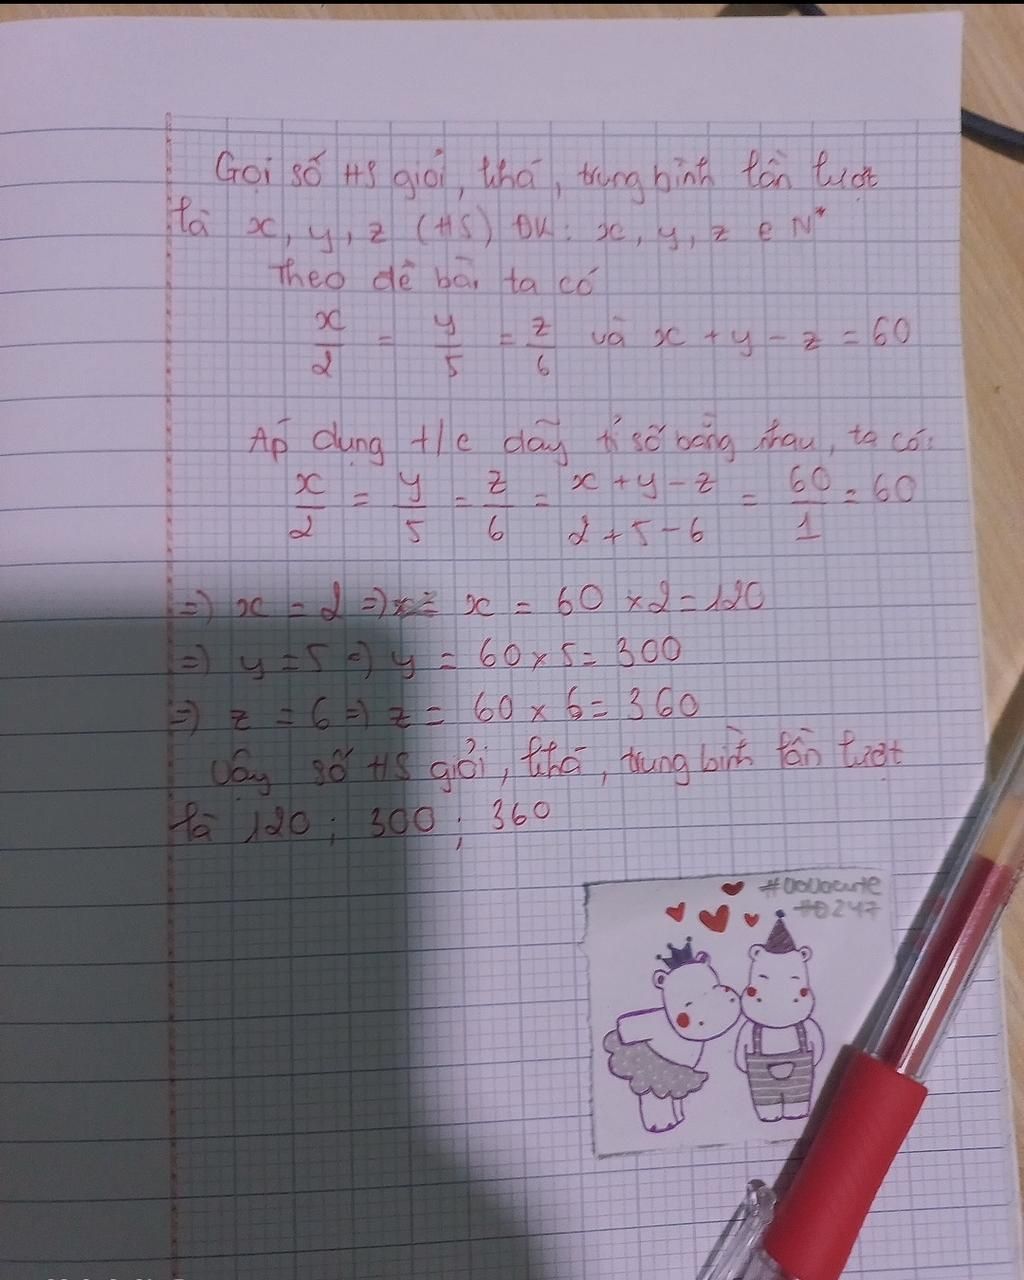 Gọi số HS giỏi, khá, trung bình lần lượt
là x, y, z (HS) ĐK: x, y, z ∈ N*
Theo đề bài ta có
x/2 = y/5 = z/6 và x + y - z = 60
Áp dụng t/c dãy tỉ số bằng nhau, ta có:
x/2 = y/5 = z/6 = x + y - z / 2 + 5 - 6 = 60/1 = 60
=> x = 2 => x = 60 × 2 = 120
=> y = 5 => y = 60 × 5 = 300
=> z = 6 => z = 60 × 6 = 360
Vậy số HS giỏi, khá, trung bình lần lượt
là 120 ; 300 ; 360